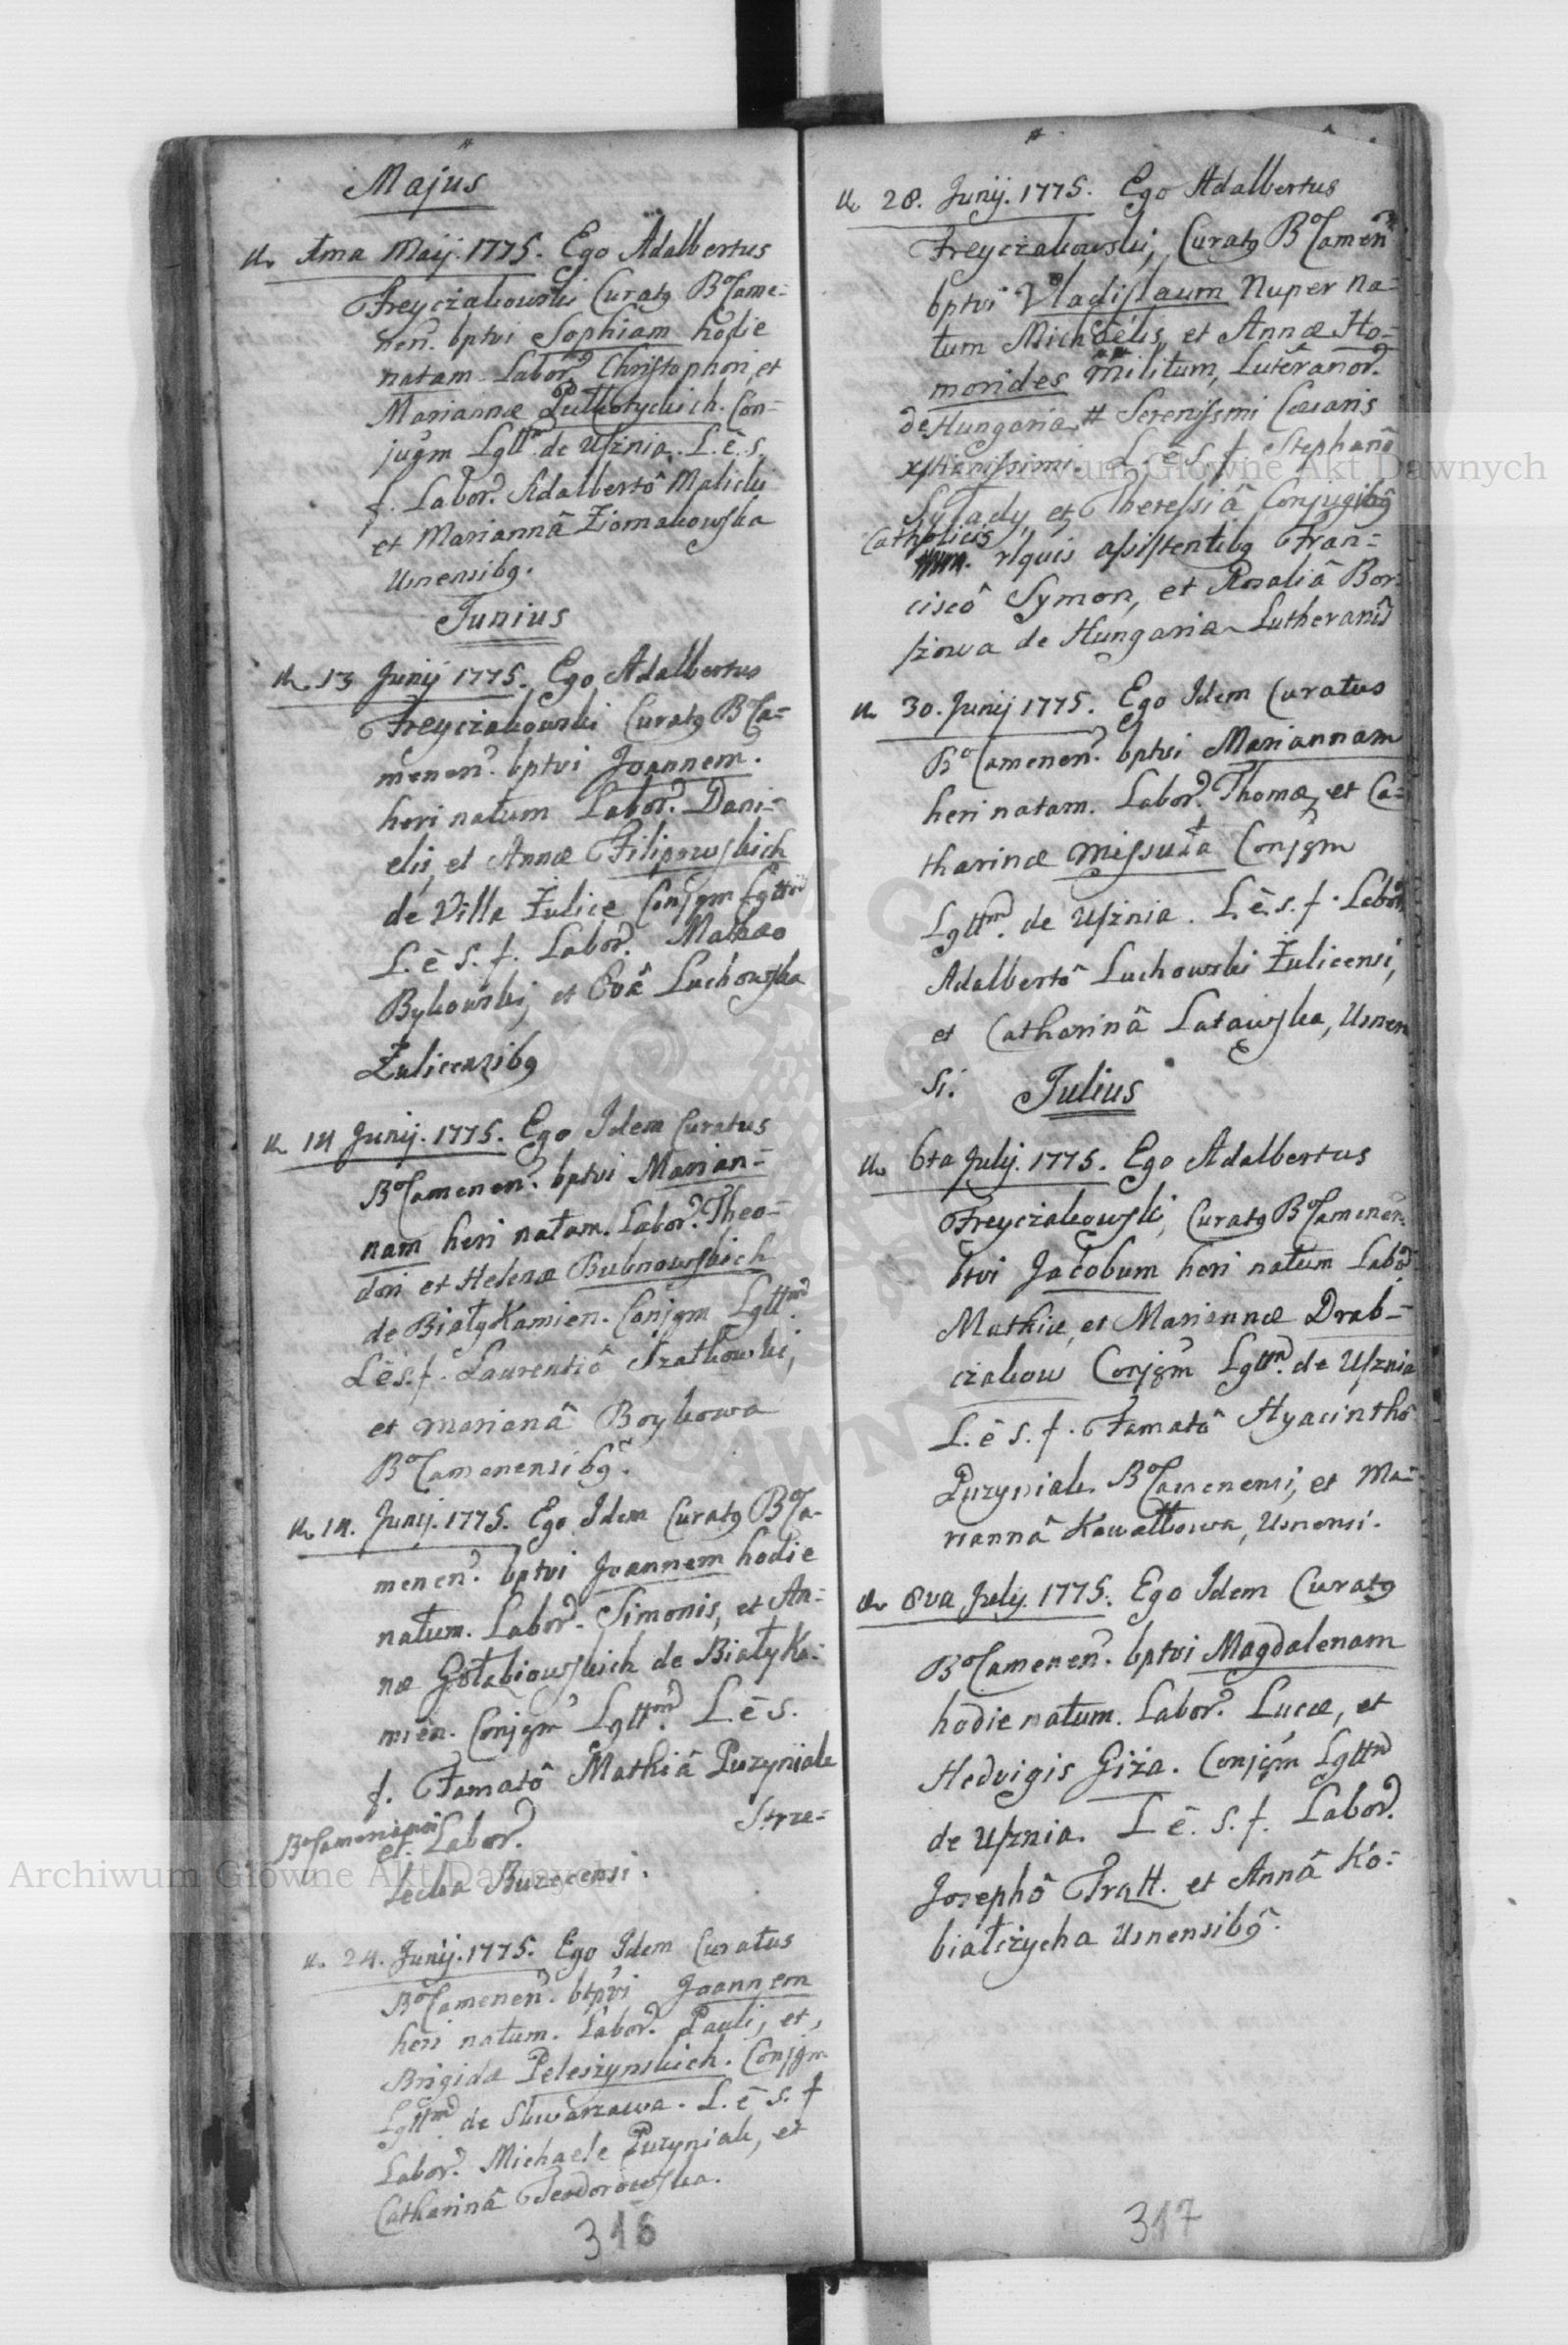 Majus
1ma Maij. 1775. Ego Adalbertus
Freyczakowski Curatg B°Came-
nen. bptvi Sophiam hodie
natam. Labor. Christophori, et
Mariannæ Con-
jugm Lgttm. de Usznia. L. è. s.
f. Labor. Adalbertô Malicki
et Mariannâ Ziomakowska
Usnensibg.
Junius
13 Junij 1775. Ego Adalbertus
Freyczakowski Curatg B°Ca-
menen. bptvi Joannem.
heri natum Labor. Dani-
elis, et Annæ Filipowskich
de Villa Żulice Conjgm Lgttm
L. è S. f. Labor. Mathæo
Bykowski, et Evâ Luchowska
Żulicensibg
14 Junij. 1775. Ego Idem Curatus
B°Camenen. bptvi Marian-
nam heri natam. Labor. Theo-
dori et Helenæ Bubnowskich
de BiałyKamien. Conjgm Lgttm.
L è s. f. Laurentiô Szatkowski,
et Marianâ Boykowa
B°Camenensibg.
14. Junij. 1775. Ego Idem Curatg B°Ca-
menen. bptvi Joannem hodie
natum. Labor. Simonis, et An-
næ Gołąbiowskich de BiałyKa-
mien. Conjgm Lgttm. L. è s.
f. Famatô Mathiâ Puzyniak
B°Camenensi et Labor. Strze-
lecka Buzecensi.
24. Junij. 1775. Ego Idem Curatus
B°Camenen. btpvi Joannem
heri natum. Labor. Pauli, et,
Brigidæ Peleszynskich. Conjgm
Lgttm. de Skwarzawa. L. è s. f
Labor. Michaele Puzyniak, et
Catharinâ Teodorowska.
316
28. Junij. 1775. Ego Adalbertus
Freyczakowski, Curatg B°Camen
bptvi Vladislaum Nuper na-
tum Michaëlis, et Annæ Ho-
morides Militum, Luteranor.
de Hungaria # Serenissimi Cæsaris
xstianissimi. L. è s. f. Stephanô
et Theressiâ Conjugibg
Catholicis rlquis assistentibg Fran-
ciscô Symon, et Rosaliâ Bor-
szowa de Hungaria Lutheranis
30. Junij 1775. Ego Idem Curatus
B°Camenen. bptvi Mariannam
heri natam. Labor. Thomæ, et Ca-
tharinæ Missuła Conjgm
Lgttm. de Usznia. L. è. s. f. Labor
Adalbertô Luchowski Żulicensi,
et Catharinâ Latawska, Usnen
si.
Julius
6ta Julij. 1775. Ego Adalbertus
Freyczakowski, Curatg B°Camenen.
btvi Jacobum heri natum Labor
Mathiæ, et Mariannæ Drab-
czakow Conjgm Lgttm. de Usznia
L. è s. f. Famatô Hyacinthô
Puzyniak. B°Camenensi, et Ma-
riannâ Kowalkowa, Usnensi.
8va Julij. 1775. Ego Idem Curatg
B°Camenen. bptvi Magdalenam
hodie natum. Labor. Lucæ, et
Hedvigis Giża. Conjgm Lgttm
de Usznia. L è. s. f. Labor.
Josephô Pratt. et Annâ Ko-
białczycha Usnensibg.
317
Archiwum Główne Akt Dawnych
Archiwum Główne Akt Dawnych